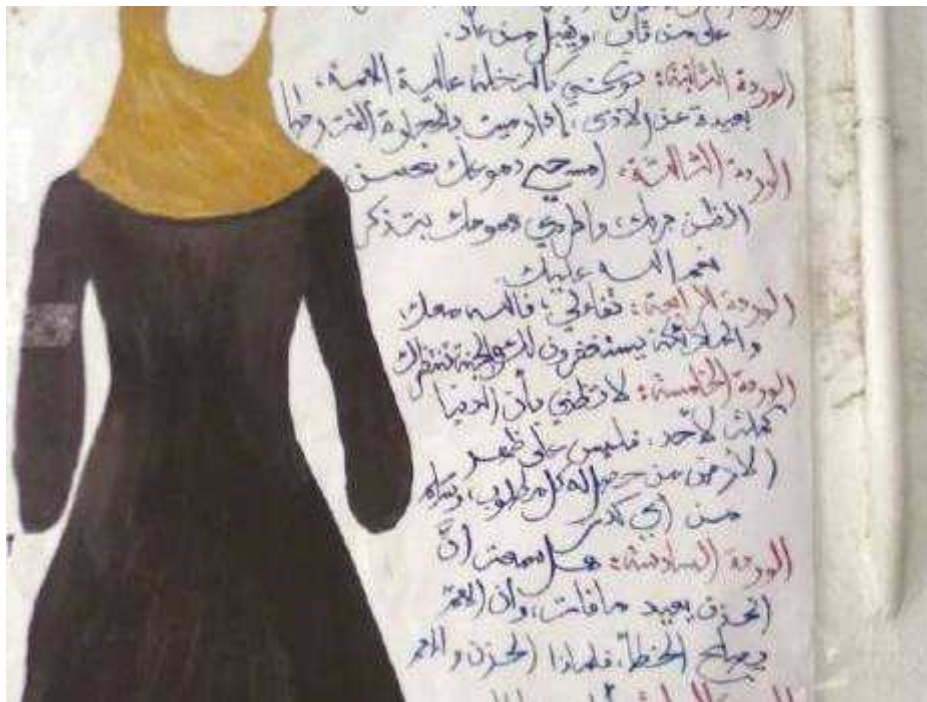 على من تاب، ويقبل من عاد.
الوردة الثانية: كوني كالنخلة عالية الهمة،
بعيدة عن الأذى، إذا رميت بالحجارة ألقت رطبها
الوردة الثالثة: امسحي دموعك بحسن
الظن بربك، واطردي همومك بتذكر
نعم الله عليك
الوردة الرابعة: تفاءلي؛ فالله معك،
والملائكة يستغفرون لك والجنة تنتظرك
الوردة الخامسة: لا تظني بأن الدنيا
كملت لأحد، فليس على ظهر
الأرض من حصل له كل مطلوب، وسلم
من أي كدر
الوردة السادسة: هل سمعت أن
الحزن يعيد ما فات، وأن الهم
يصلح الخطأ، فلماذا الحزن والهم